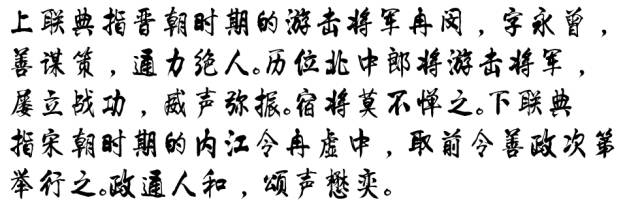 上联典指晋朝时期的游击将军冉闵，字永曾，
善谋策，通力绝人。历位北中郎将游击将军，
屡立战功，威声弥振。宿将莫不惮之。下联典
指宋朝时期的内江令冉虚中，取前令善政次第
举行之。政通人和，颂声懋奕。